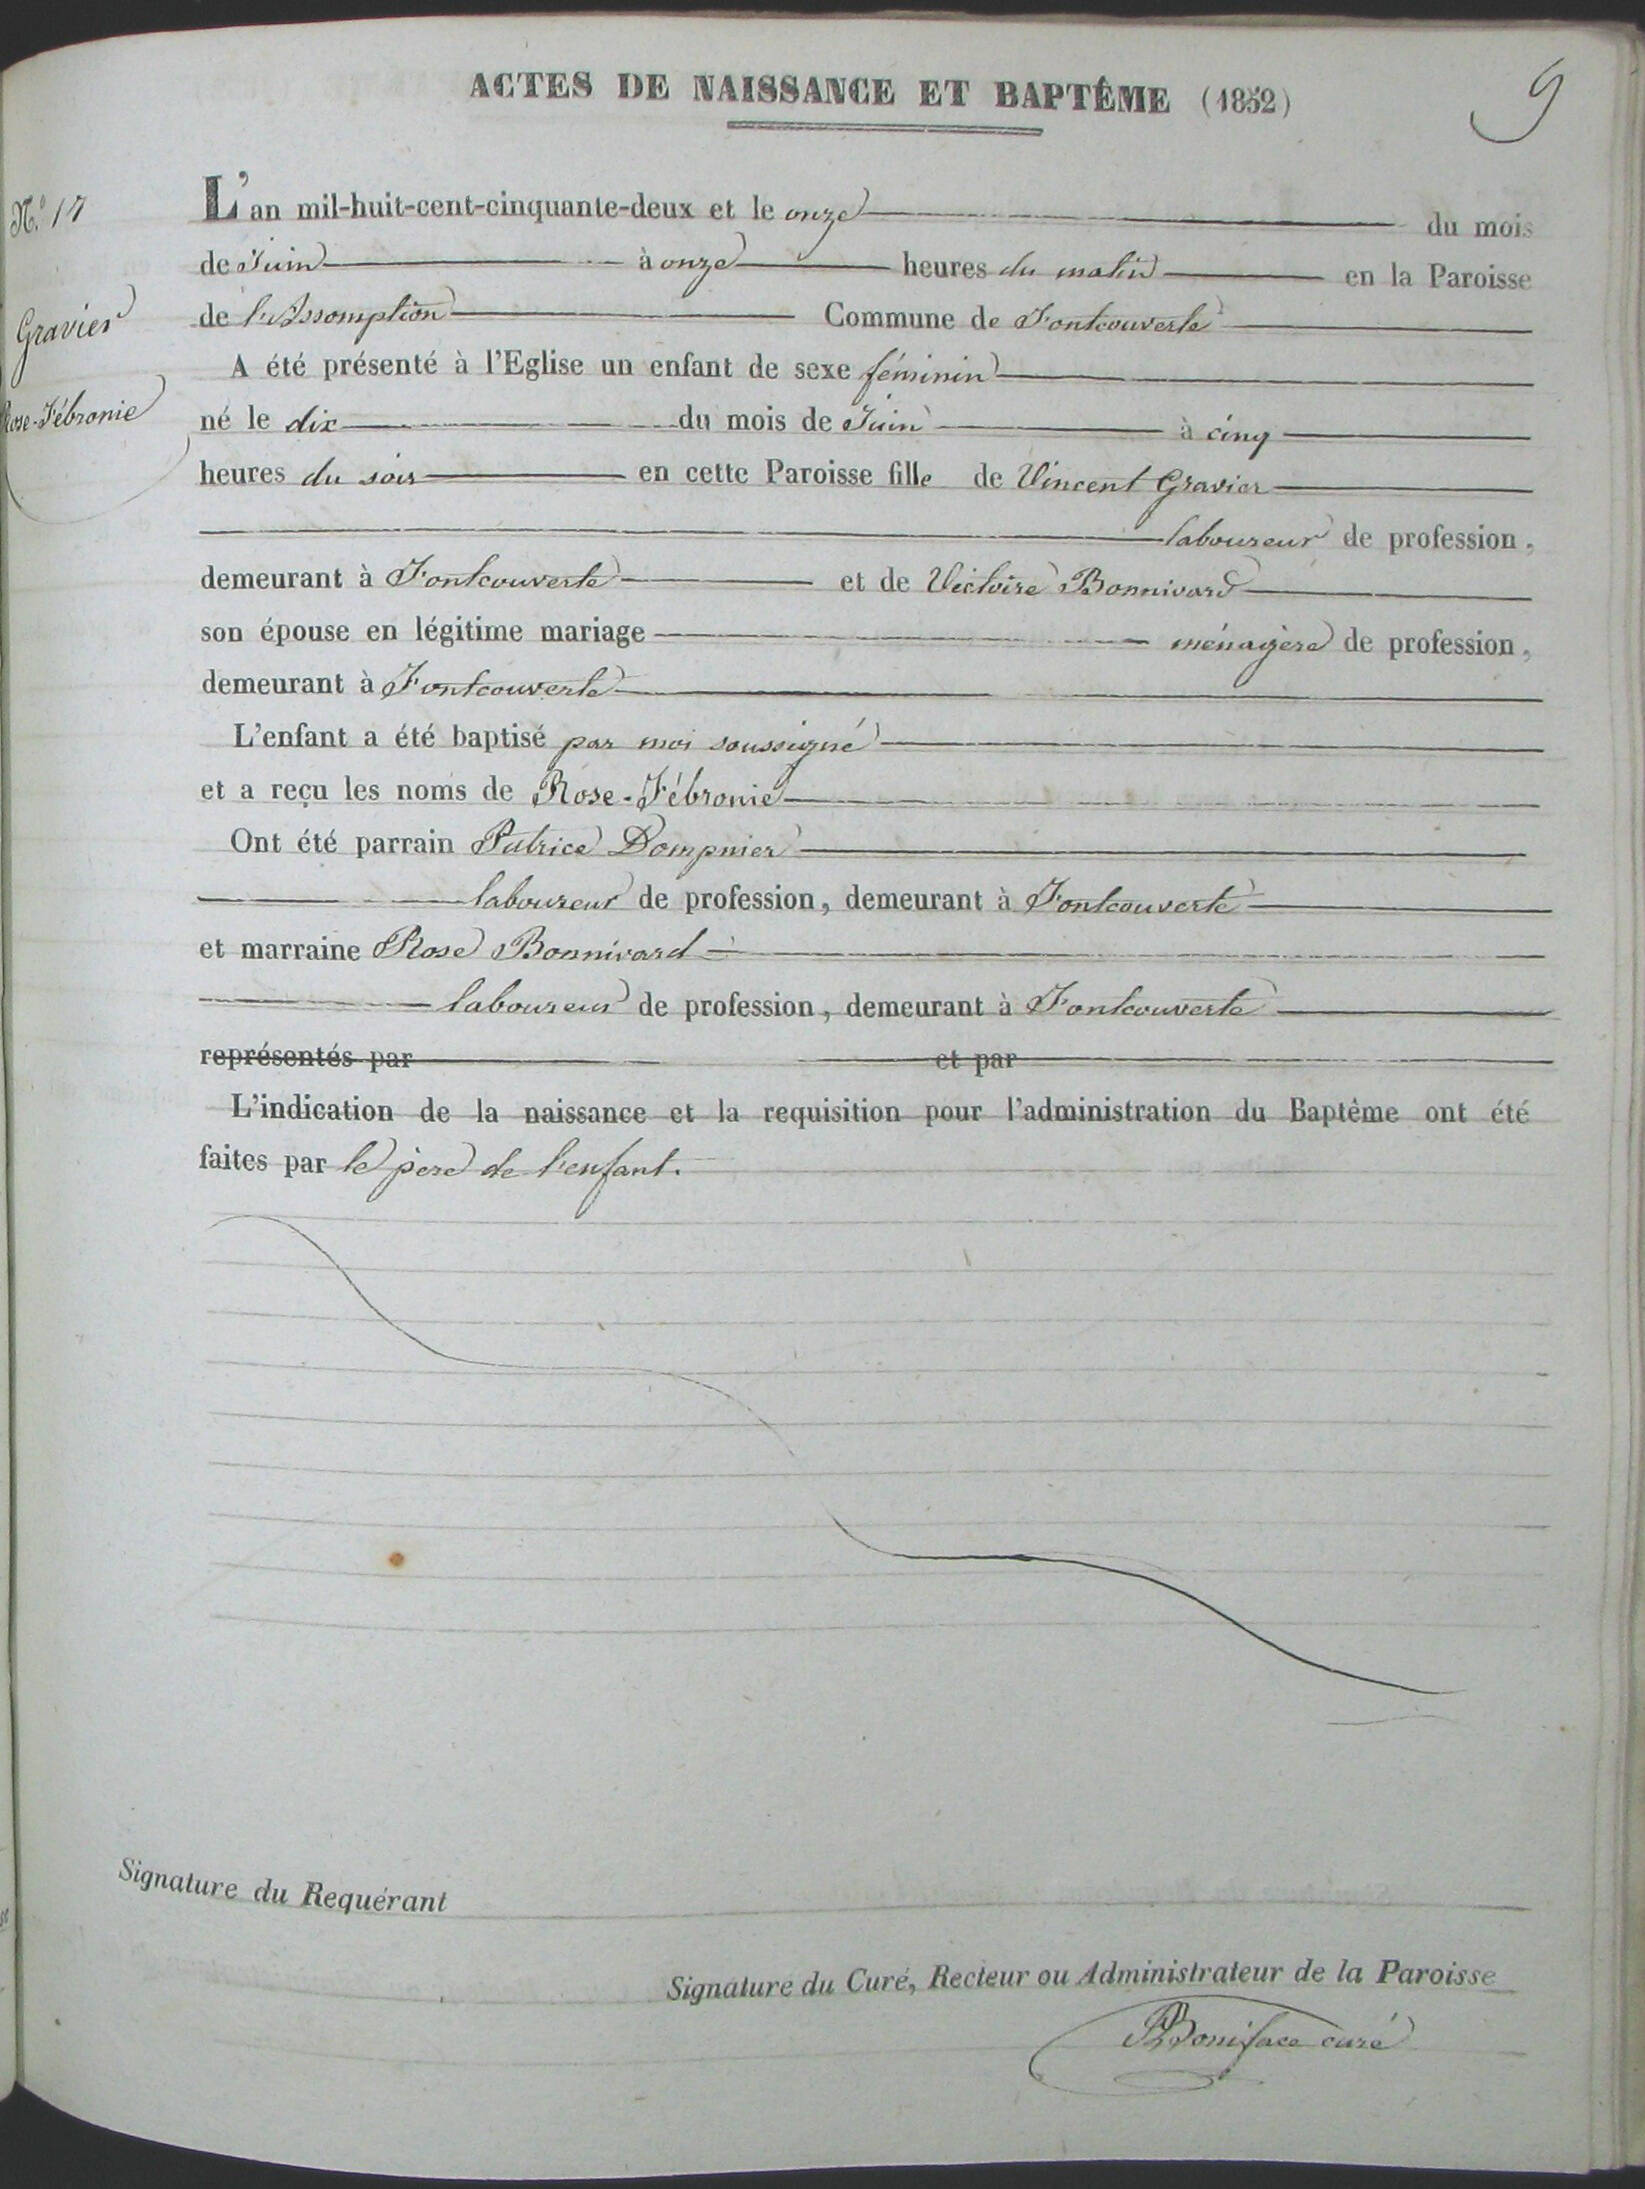 ACTES DE NAISSANCE ET BAPTÊME (1852)
9
N.º 17
Gravier
Rose-Fébronie
L'an mil-huit-cent-cinquante-deux et le onze du mois
de Juin à onze heures du matin en la Paroisse
de l'Assomption Commune de Fontcouverte
A été présenté à l'Eglise un enfant de sexe féminin
né le dix du mois de Juin à cinq
heures du soir en cette Paroisse fille de Vincent Gravier
laboureur de profession,
demeurant à Fontcouverte et de Victoire Bonnivard
son épouse en légitime mariage ménagère de profession,
demeurant à Fontcouverte
L'enfant a été baptisé par moi soussigné
et a reçu les noms de Rose-Fébronie
Ont été parrain Patrice Dompnier
laboureur de profession, demeurant à Fontcouverte
et marraine Rose Bonnivard
laboureur de profession, demeurant à Fontcouverte
représentés par et par
L'indication de la naissance et la requisition pour l'administration du Baptême ont été
faites par le père de l'enfant.
Signature du Requérant
Signature du Curé, Recteur ou Administrateur de la Paroisse
Boniface curé